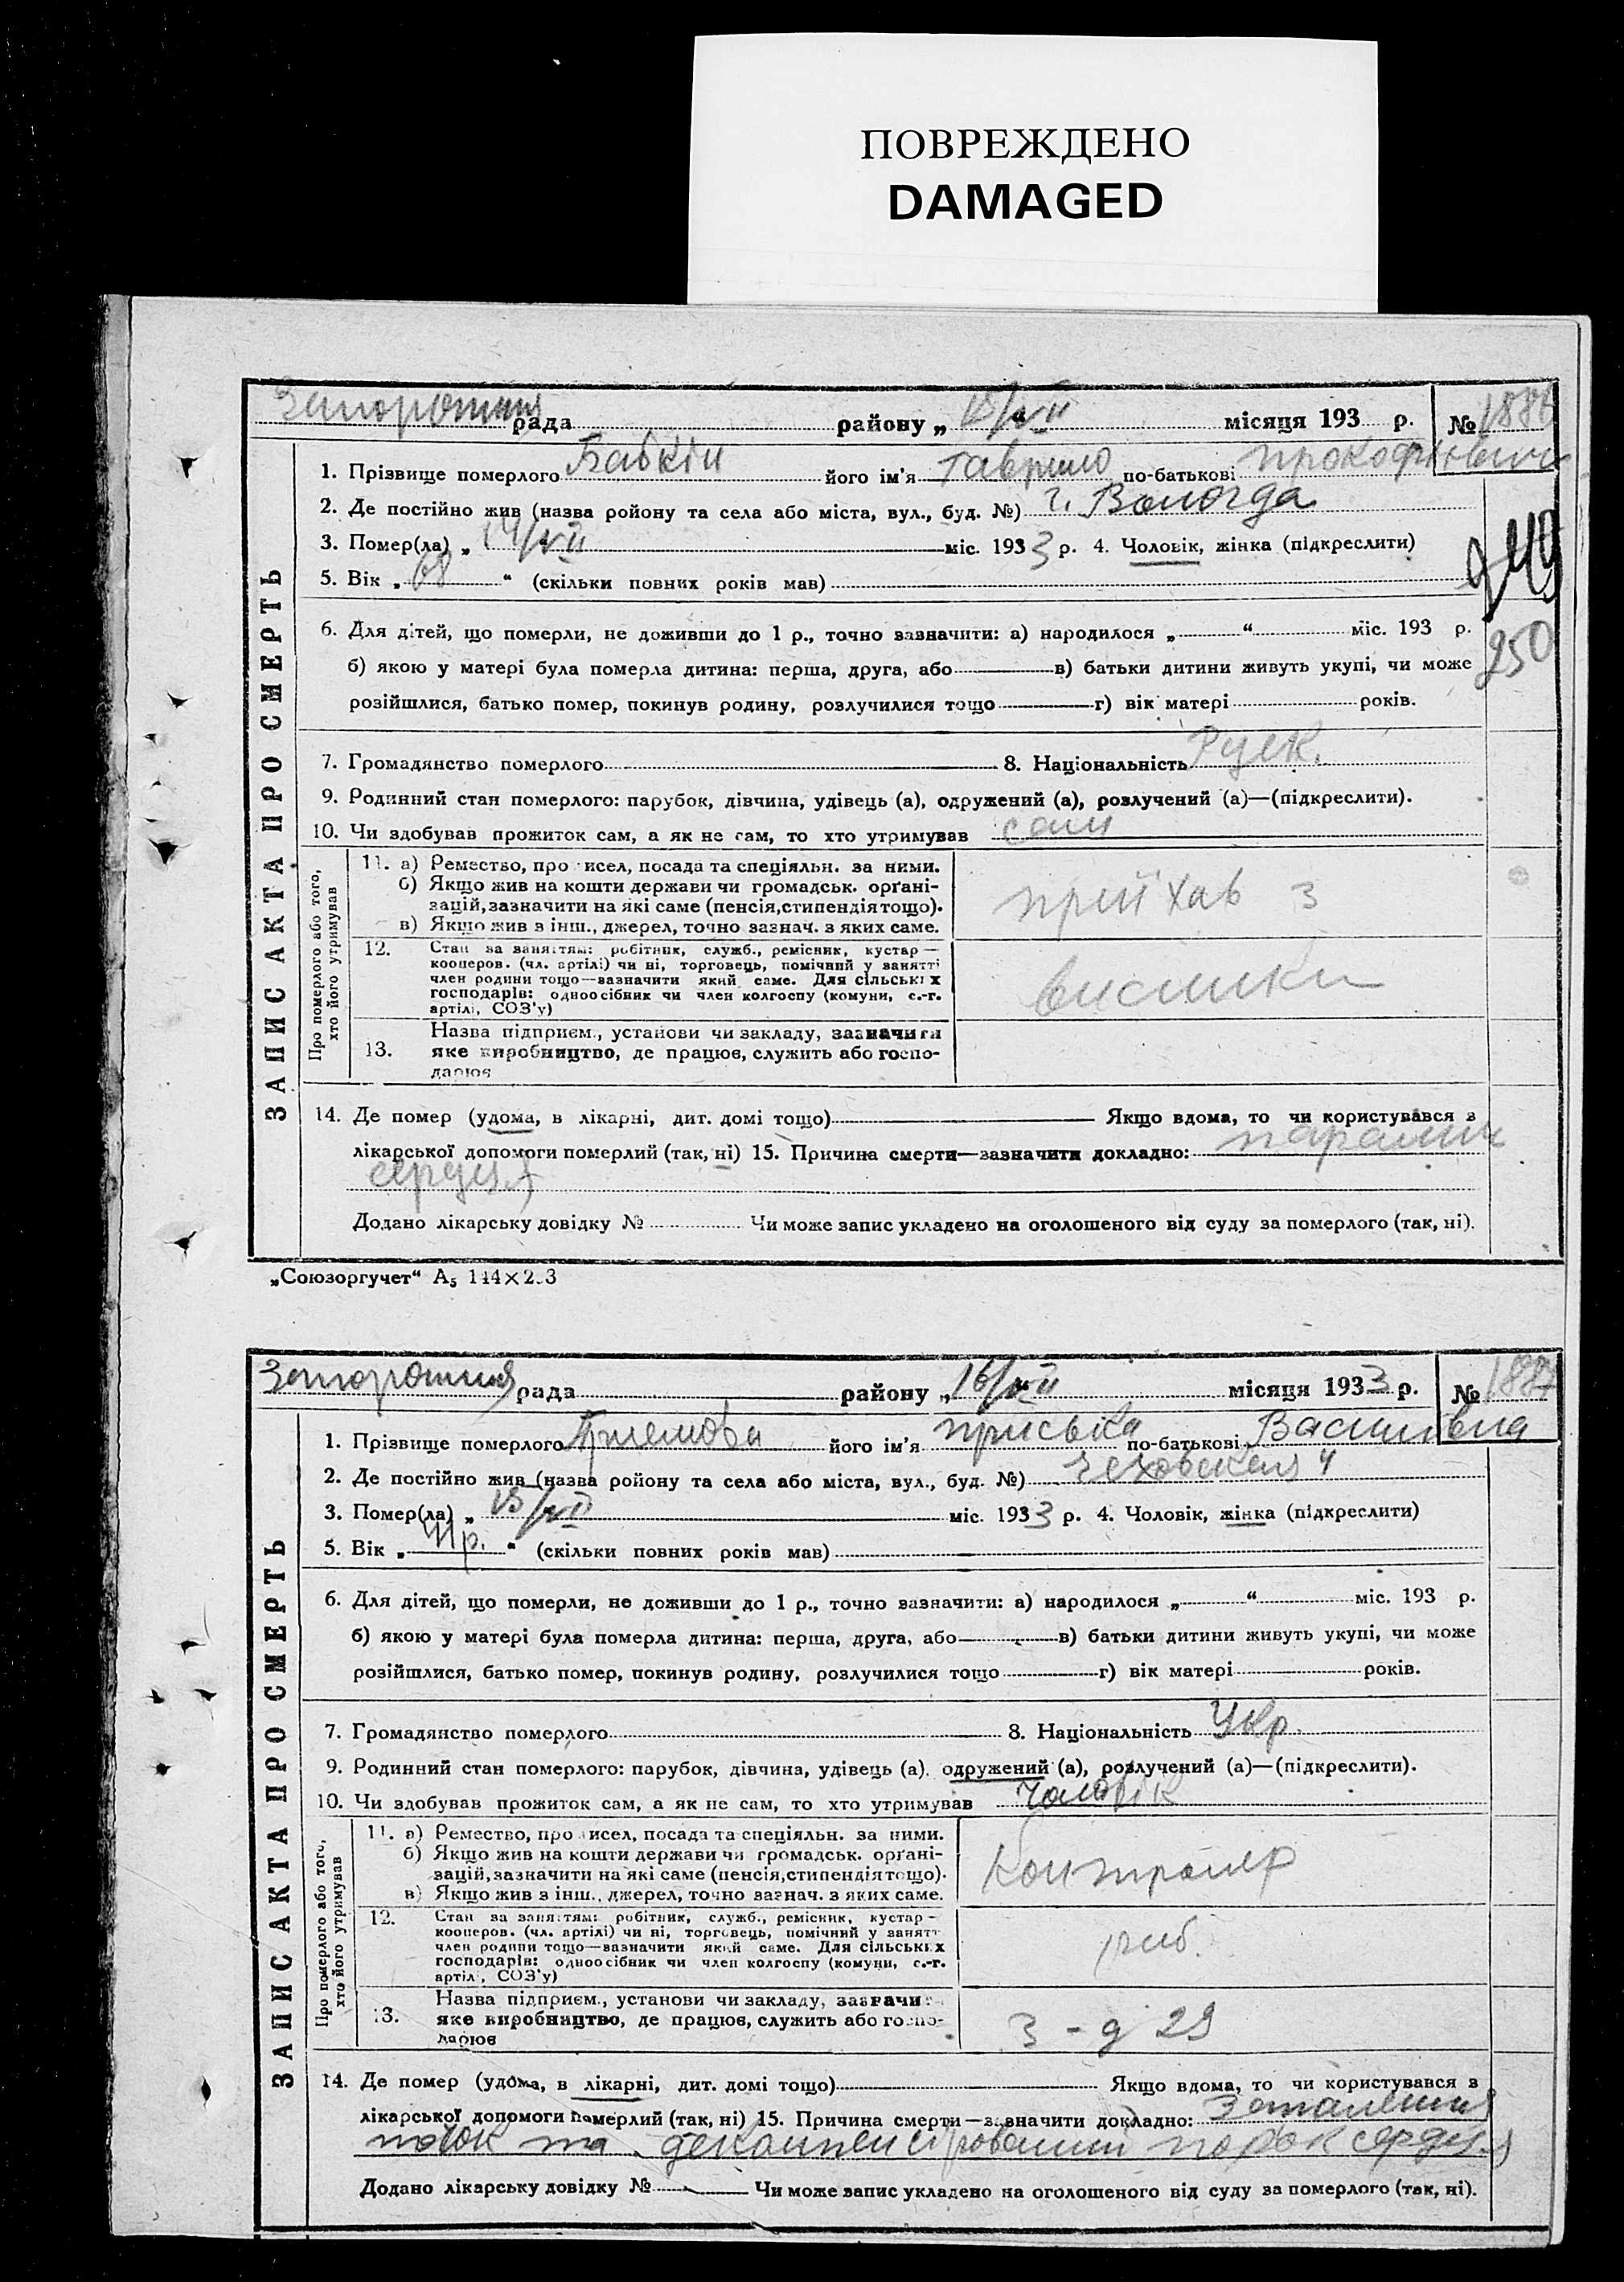 ПОВРЕЖДЕНО
DAMAGED
рада района „ 15/VII “ місяця 193 р. № 1886
1. Прізвище померлого Бабкін його ім'я Гаврило по-батькові Прокофієвич
2. Де постійно жив (назва ройону та села або міста, вул., буд. №) г. Вологда
3. Помер(ла) „ 14/VII міс. 1933 р. 4. Чоловік, жінка (підкреслити)
5. Вік „ 68 “ (скільки повних років мав)
6. Для дітей, що померли, не доживши до 1 р., точно зазначити: а) народилося „ “ міс. 193 р.
б) якою у матері була померла дитина: перша, друга, або в) батьки дитини живуть укупі, чи може
розійшлися, батько помер, покинув родину, розлучилися тощо г) вік матері років.
250
7. Громадянство померлого 8. Національність Руск.
9. Родинний стан померлого: парубок, дівчина, удівець (а), одружений (а), розлучений (а)—(підкреслити).
10. Чи здобував прожиток сам, а як не сам, то хто утримував сам
ЗАПИС АКТА ПРО СМЕРТЬ
Про померлого або того, хто його утримував
11. а) Ремество, про исел, посада та спеціяльн. за ними.
б) Якщо жив на кошти держави чи громадськ. орґані-
зацій, зазначити на які саме (пенсія, стипендія тощо).
в) Якщо жив з інш., джерел, точно зазнач. з яких саме.
приїхав з
12. Стан за заняттям: робітник, служб., ремісник, кустар —
кооперов. (чл. артілі) чи ні, торговець, помічний у занятті
член родини тощо—зазначити який саме. Для сільських
господарів: одноосібник чи член колгоспу (комуни, с.-г.
артілі, СОЗ'у)
висилки
13. Назва підприєм., установи чи закладу, зазначити
яке виробництво, де працює, служить або госпо-
дарює
14. Де помер (удома, в лікарні, дит. домі тощо) Якщо вдома, то чи користувався з
лікарської допомоги померлий (так, ні) 15. Причина смерти—зазначити докладно: параліч
серця
Додано лікарську довідку № Чи може запис укладено на оголошеного від суду за померлого (так, ні).
„Союзоргучет“ А5 144×2 3
рада району „ 16/VII місяця 1933 р. № 1887
1. Прізвище померлого його ім'я Приська по-батькові Василівна
2. Де постійно жив (назва ройону та села або міста, вул., буд. №) Чеховская 4
3. Помер(ла) „ 15/VII міс. 1933 р. 4. Чоловік, жінка (підкреслити)
5. Вік „ “ (скільки повних років мав)
6. Для дітей, що померли, не доживши до 1 р., точно зазначити: а) народилося „ “ міс. 193 р.
б) якою у матері була померла дитина: перша, друга, або в) батьки дитини живуть укупі, чи може
розійшлися, батько помер, покинув родину, розлучилися тощо г) вік матері років.
7. Громадянство померлого 8. Національність Укр
9. Родинний стан померлого: парубок, дівчина, удівець (а), одружений (а), розлучений (а)—(підкреслити).
10. Чи здобував прожиток сам, а як не сам, то хто утримував Чоловік
ЗАПИС АКТА ПРО СМЕРТЬ
Про померлого або того, хто його утримував
11. а) Ремество, про исел, посада та спеціяльн. за ними.
б) Якщо жив на кошти держави чи громадськ. орґані-
зацій, зазначити на які саме (пенсія, стипендія тощо).
в) Якщо жив з інш., джерел, точно зазнач. з яких саме.
Контролер
12. Стан за заняттям: робітник, служб., ремісник, кустар —
кооперов. (чл. артілі) чи ні, торговець, помічний у занятт
член родини тощо—зазначити який саме. Для сільських
господарів: одноосібник чи член колгоспу (комуни, с.-г.
артіл , СОЗ'у)
13. Назва підприєм., установи чи закладу, зазначи
яке виробництво, де працює, служить або госпо-
дарює
З-д 29
14. Де помер (удома, в лікарні, дит. домі тощо) Якщо вдома, то чи користувався з
лікарської допомоги померлий (так, ні) 15. Причина смерти—зазначити докладно: Запалення
та порок серця
Додано лікарську довідку № Чи може запис укладено на оголошеного від суду за померлого (так, ні).